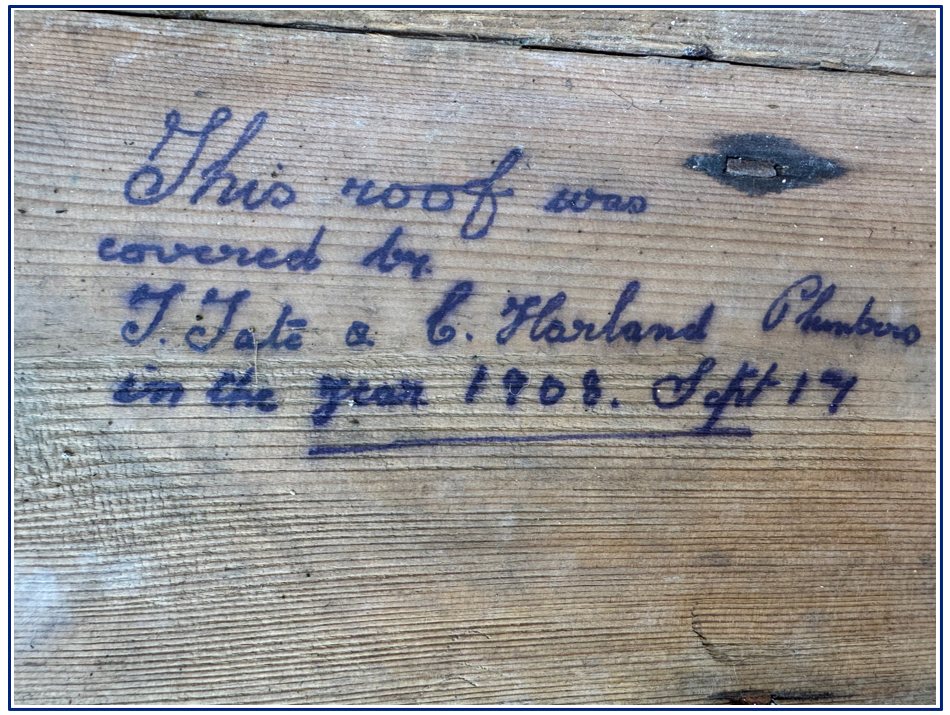 This roof was
covered by
T. Tate & C. Harland Plumbers
in the year 1908. Sept 17